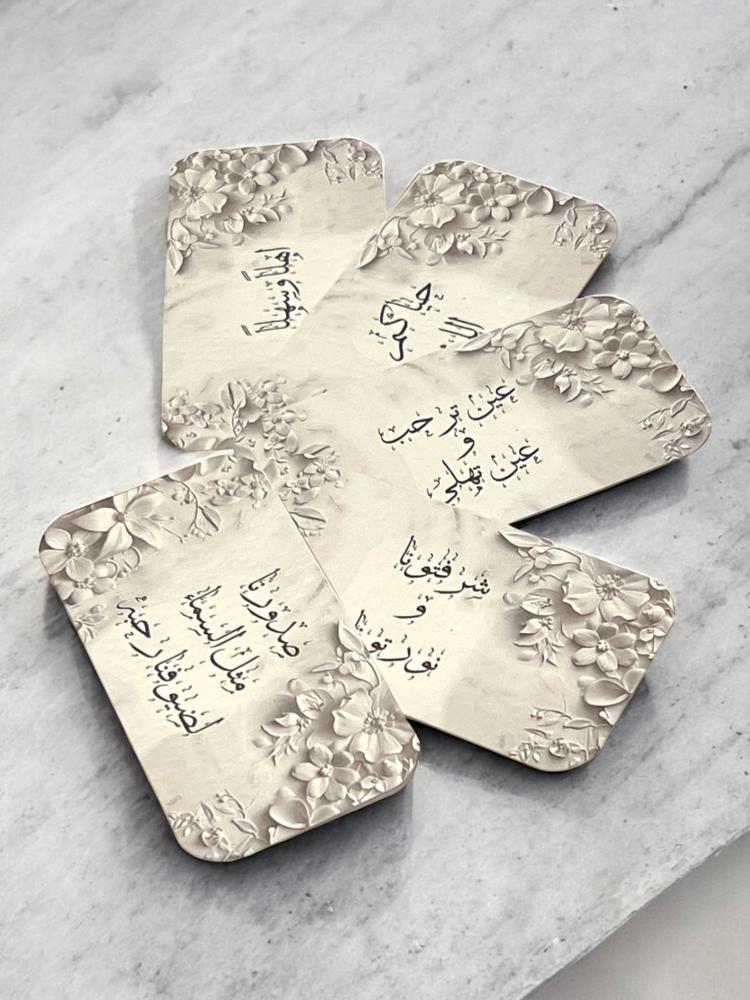 اهلاً وسهلاً
حياكم
الله
عين ترحب
و
عين تهلي
شرفتونا
و
نورتونا
صدورنا
مثل السماء
لضيوفنا رحبة